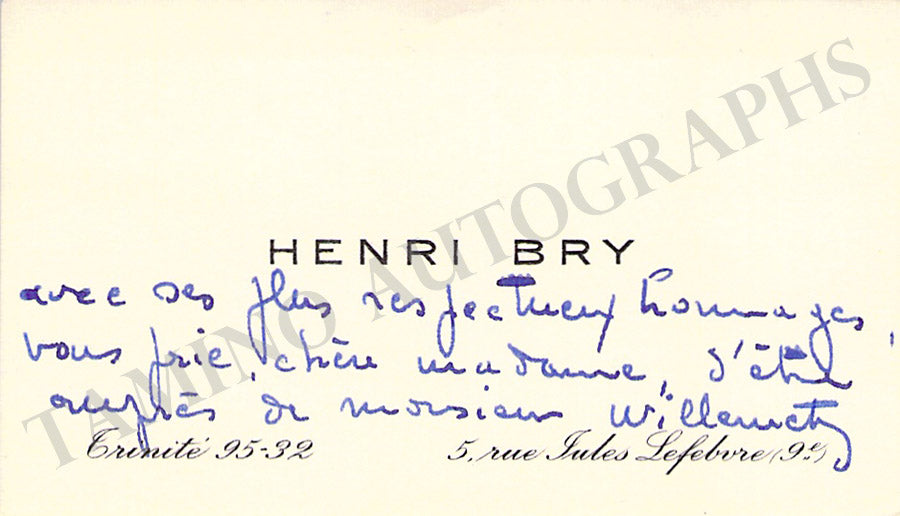 HENRI BRY
avec ses plus respectueux hommages,
vous prie, chère madame, d'être
auprès de monsieur Willemetz
Trinité 95-32
5, rue Jules Lefebvre (9e)
TAMINO AUTOGRAPHS